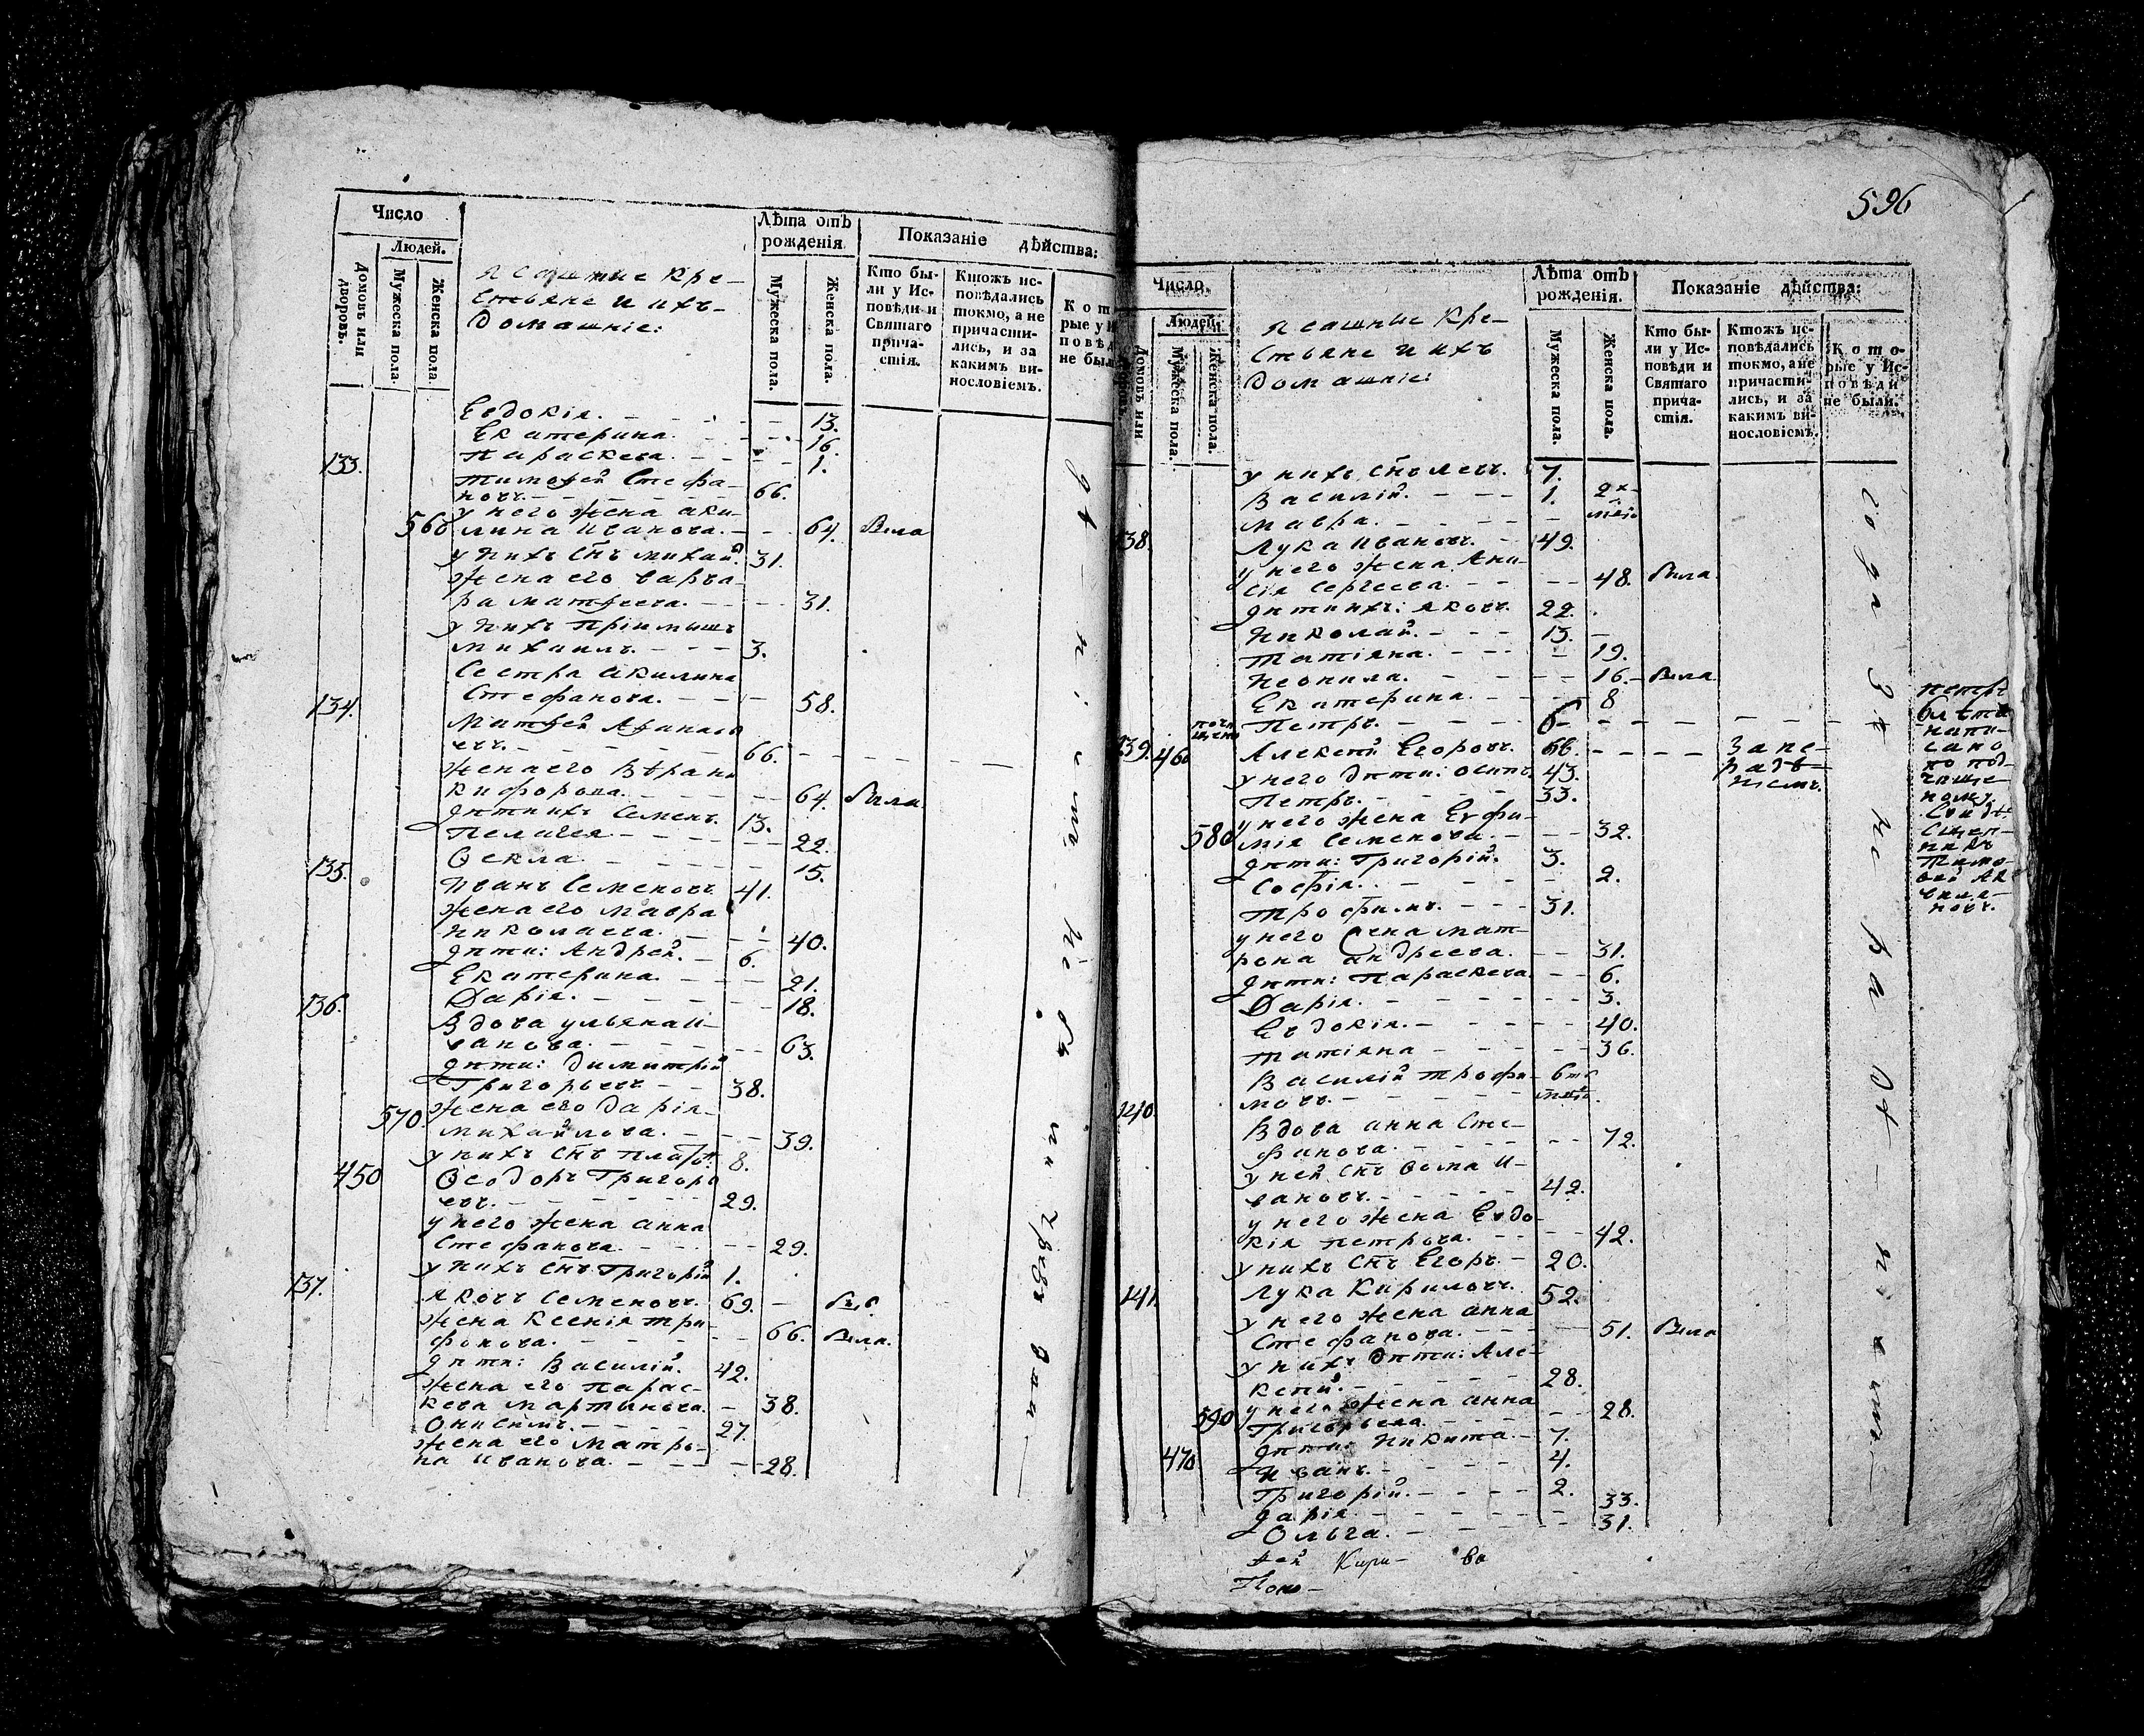 Число
Людей.
Домовъ или дворовъ.
Мужеска пола.
Женска пола.
Ясашные кре-
стьяне и ихъ
домашніе:
Лѣта отъ
рожденія.
Мужеска пола.
Женска пола.
Показаніе дѣйства:
Кто бы-
ли у Ис-
повѣди и
Святаго
прича-
стія.
Ктожъ ис-
повѣдались
токмо, а не
причасти-
лись, и за
какимъ ви-
нословіемъ.
Кот
рые у И
повѣд
не был
Евдокія. 13.
Екатерина. 16.
Параскева. 1.
133. Тимофей Стефа-
новъ. 66.
у него жена Аки-
560 лина Иванова. 64. Была
у нихъ снъ Михаи. 31.
жена его Варва-
ра Матфеева. 31.
у нихъ пріимышъ
Михаилъ. 3.
Сестра Акилина
Стефанова. 58.
134. Матфей Афанась
евъ. 66.
жена его Вѣра Ни
кифорова. 64. Была
дѣти ихъ Семенъ. 13.
Пелагея 22.
Ѳекла 15.
135. Иванъ Семеновъ 41.
жена его Мавра
Николаева. 40.
дѣти: Андрей. 6.
Екатерина. 21.
Дарія. 18.
136. Вдова Ульяна И-
ванова. 63.
дѣти: Димитрій
Григорьевъ 38.
570. жена его Дарія
Михайлова. 39.
у нихъ снъ Плато: 8.
450 Ѳеодоръ Григорь
евъ. 29.
у него жена Анна
Стефанова. 29.
у нихъ снъ Григорій 1.
137. Яковъ Семеновъ. 69.
жена Ксенія Три-
фонова. 66. Была.
дѣти: Василій. 42.
жена его Парас-
кева Мартинова. 38.
Онисимъ. 27.
жена его Матро-
на Иванова. 28.
596
Число.
Людей.
Домовъ или дворовъ.
Мужеска пола.
Женска пола.
Ясашные кре-
стьяне и ихъ
домашніе:
Лѣта отъ
рожденія.
Мужеска пола.
Женска пола.
Показаніе дѣйства:
Кто бы-
ли у Ис-
повѣди и
Святаго
прича-
стія.
Ктожъ ис-
повѣдались
токмо, а не
причасти-
лись, и за
какимъ ви-
нословіемъ.
Кото-
рые у Ис-
повѣди
не были.
у нихъ снъ Левъ. 7.
Василій. 1.
Мавра.
138. Лука Ивановъ. 49.
у него жена Ани-
сія Сергеева. 48. Была
дѣти ихъ: Яковъ 22.
Николай. 13.
Татіяна. 19.
Неонила. 16. Была
Екатерина 8
Петръ. 6
139. 460 Алексѣй Егоровъ. 66.
у него дѣти: Осипъ. 43.
Петръ. 33.
у него жена Евфи-
580 мія Семенова. 32.
дѣти: Григорій. 3.
Софія. 2.
Трофимъ. 31.
у него жена Мат-
рона Андреева. 31.
дѣти: Параскева 6.
Дарія. 3.
Евдокія. 40.
Татіяна 36.
Василій Трофи-
мовъ.
140. Вдова Анна Сте-
фанова. 72.
у ней снъ Ѳома И-
вановъ. 42.
у него жена Евдо-
кія Петрова. 42.
у нихъ снъ Егоръ. 20.
141. Лука Кириловъ. 52.
у него жена Анна
Стефанова. 51. Была
у нихъ дѣти: Але-
ксѣй. 28.
у него жена Анна
590 Григорьева. 28.
дѣти: Никита. 7.
470 Иванъ. 4.
Григорій. 2.
Дарія. 33.
Ольга. 31.